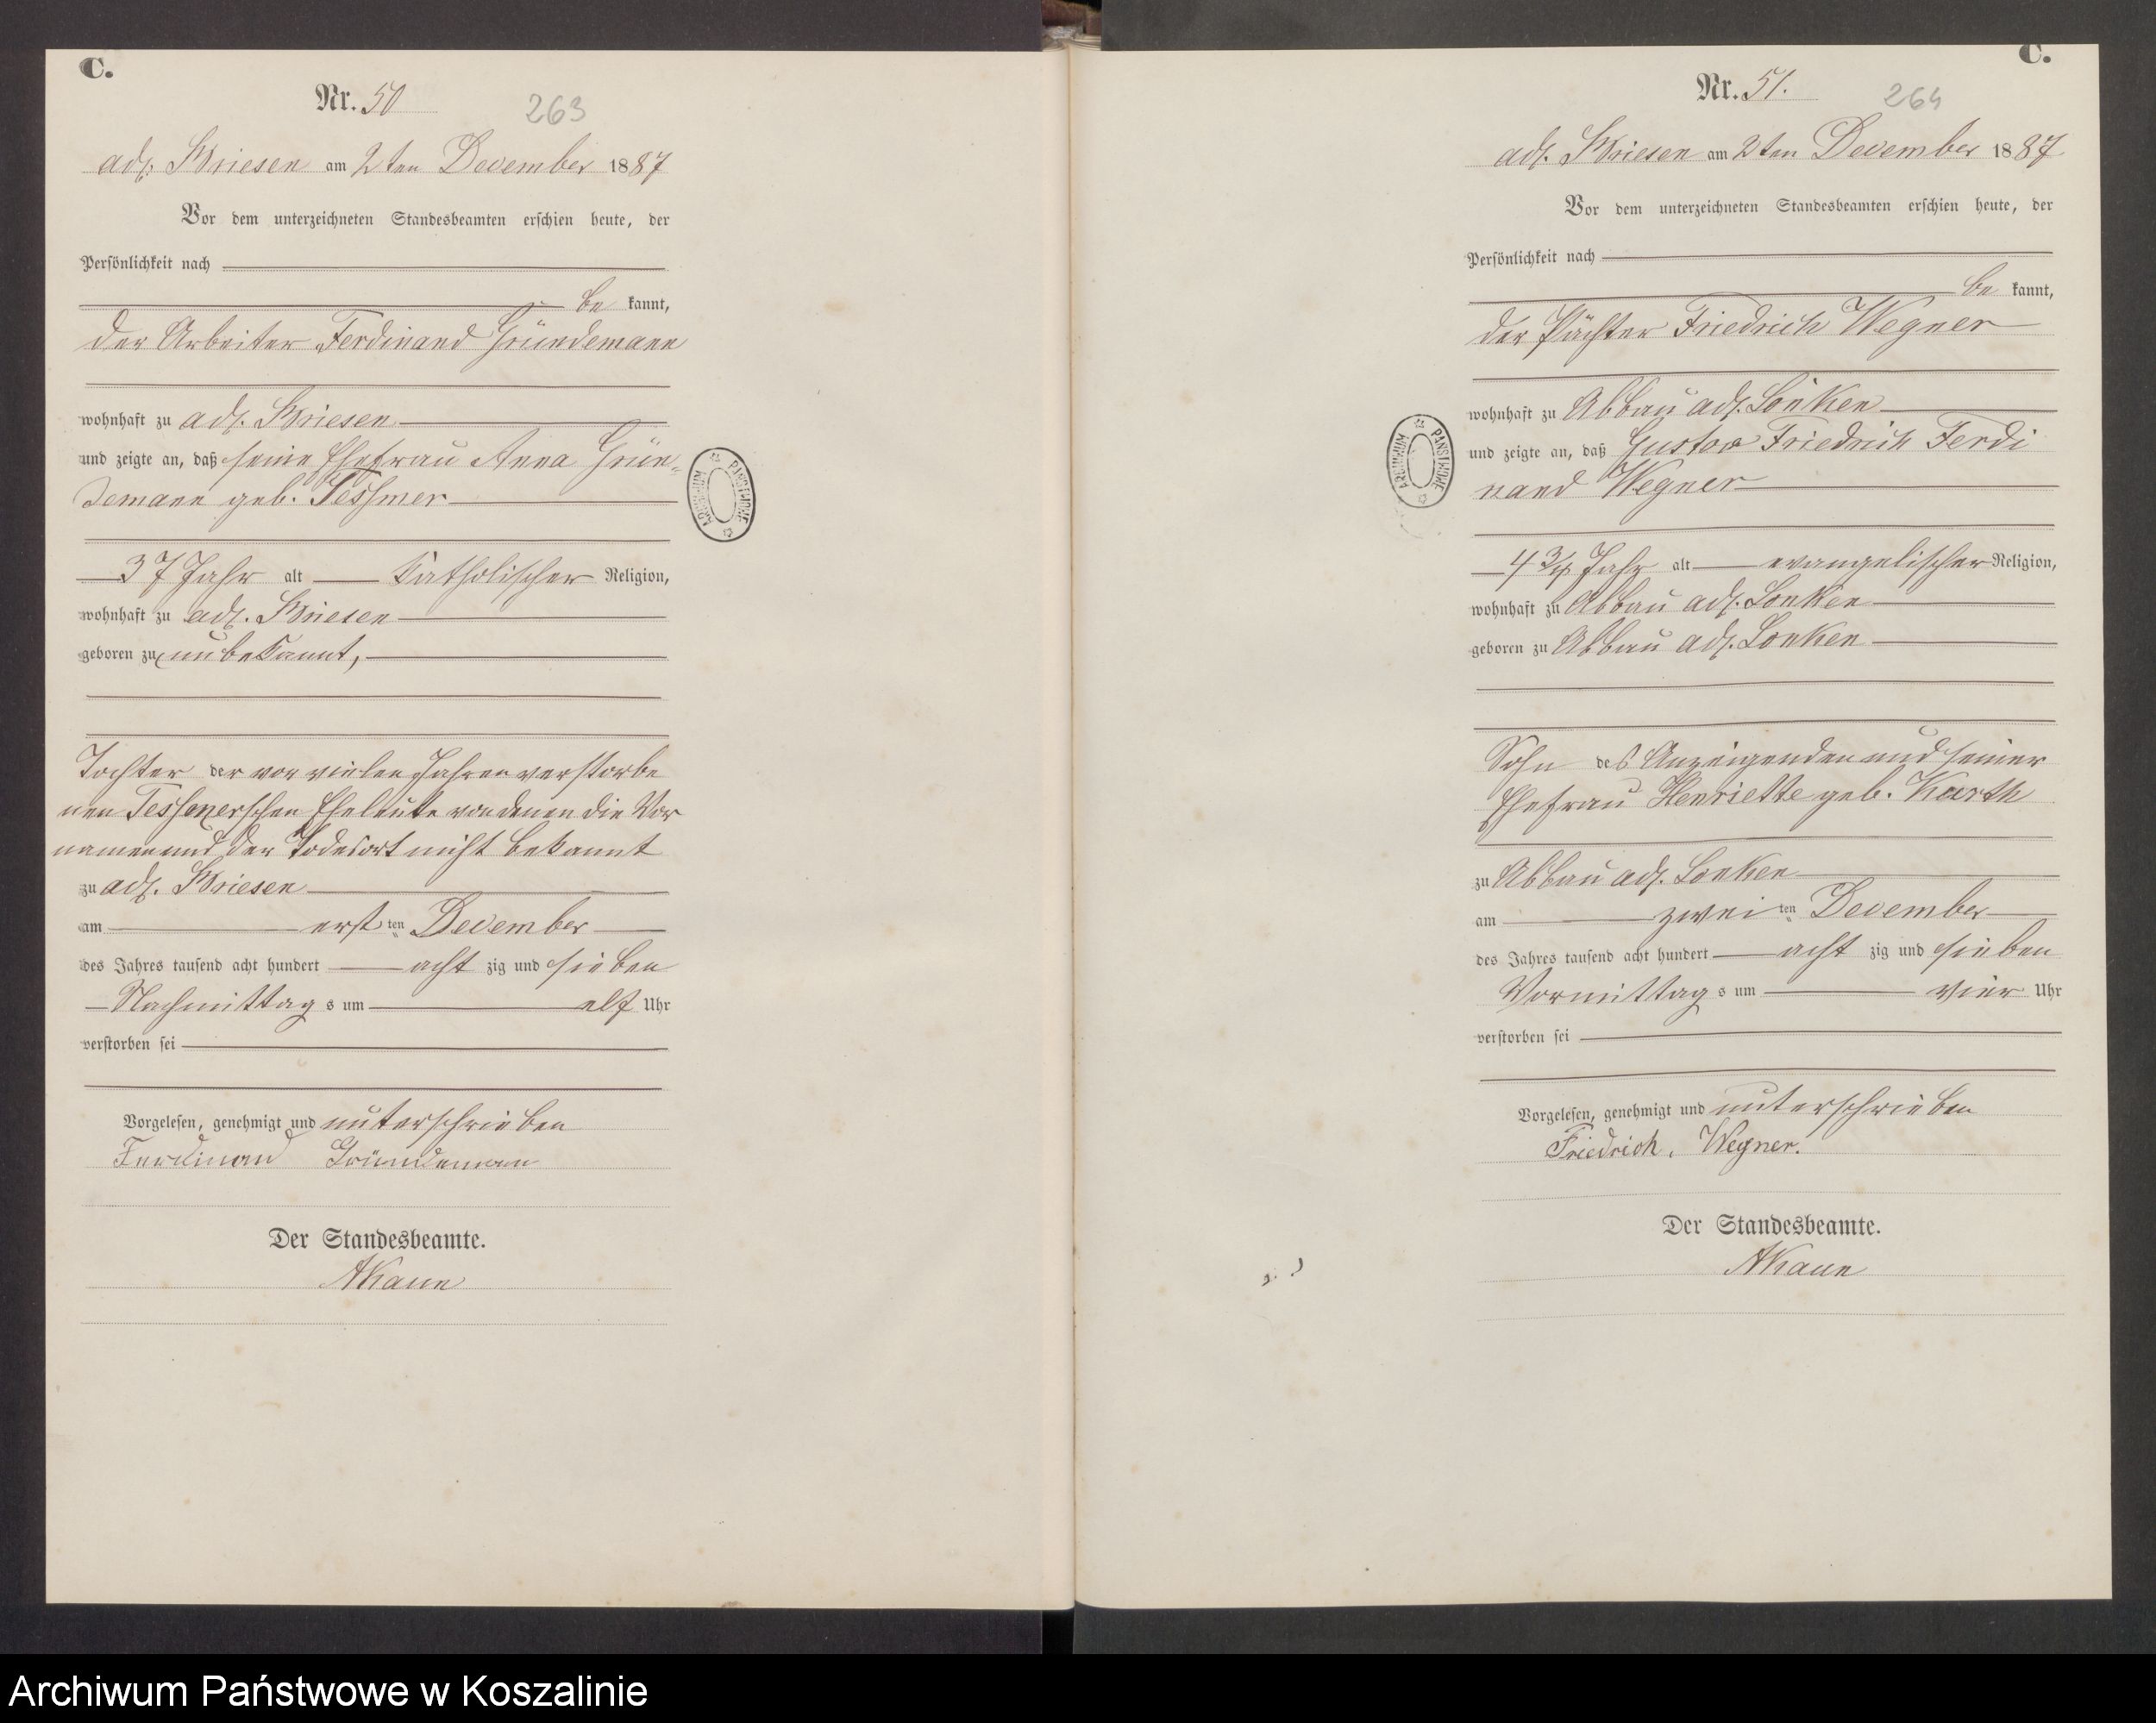 C.
Nr. 50
263
adl. Briesen am 2ten December 1887
Vor dem unterzeichneten Standesbeamten erschien heute, der
Persönlichkeit nach
be kannt,
der Arbeiter Ferdinand Gründemann
wohnhaft zu adl. Briesen
und zeigte an, daß seine Ehefrau Anna Grün-
demann geb. Tessmer
37 Jahr alt katholischer Religion,
wohnhaft zu adl. Briesen
geboren zu unbekannt,
Tochter der vor vielen Jahren verstorbe
nen Tessmerschen Eheleute von denen die Vor
namen und der Todesort nicht bekannt
zu adl. Briesen
am ersten December
des Jahres tausend acht hundert acht zig und sieben
Nachmittag s um elf Uhr
verstorben sei
Vorgelesen, genehmigt und unterschrieben
Ferdinand Gründemann
Der Standesbeamte.
AKaun
ARCHIWUM PAŃSTWOWE
C.
Nr. 51.
264
adl. Briesen am 2ten December 1887
Vor dem unterzeichneten Standesbeamten erschien heute, der
Persönlichkeit nach
be kannt,
der Pächter Friedrich Wegner
wohnhaft zu Abbau adl. Lonken
und zeigte an, daß Gustav Friedrich Ferdi
nand Wegner
4 3/4 Jahr alt evangelischer Religion,
wohnhaft zu Abbau adl. Lonken
geboren zu Abbau adl. Lonken
Sohn des Anzeigenden und seiner
Ehefrau Henriette geb. Karth
zu Abbau adl. Lonken
am zweiten December
des Jahres tausend acht hundert acht zig und sieben
Vormittag s um vier Uhr
verstorben sei
Vorgelesen, genehmigt und unterschrieben
Friedrich. Wegner.
Der Standesbeamte.
AKaun
ARCHIWUM PAŃSTWOWE
Archiwum Państwowe w Koszalinie